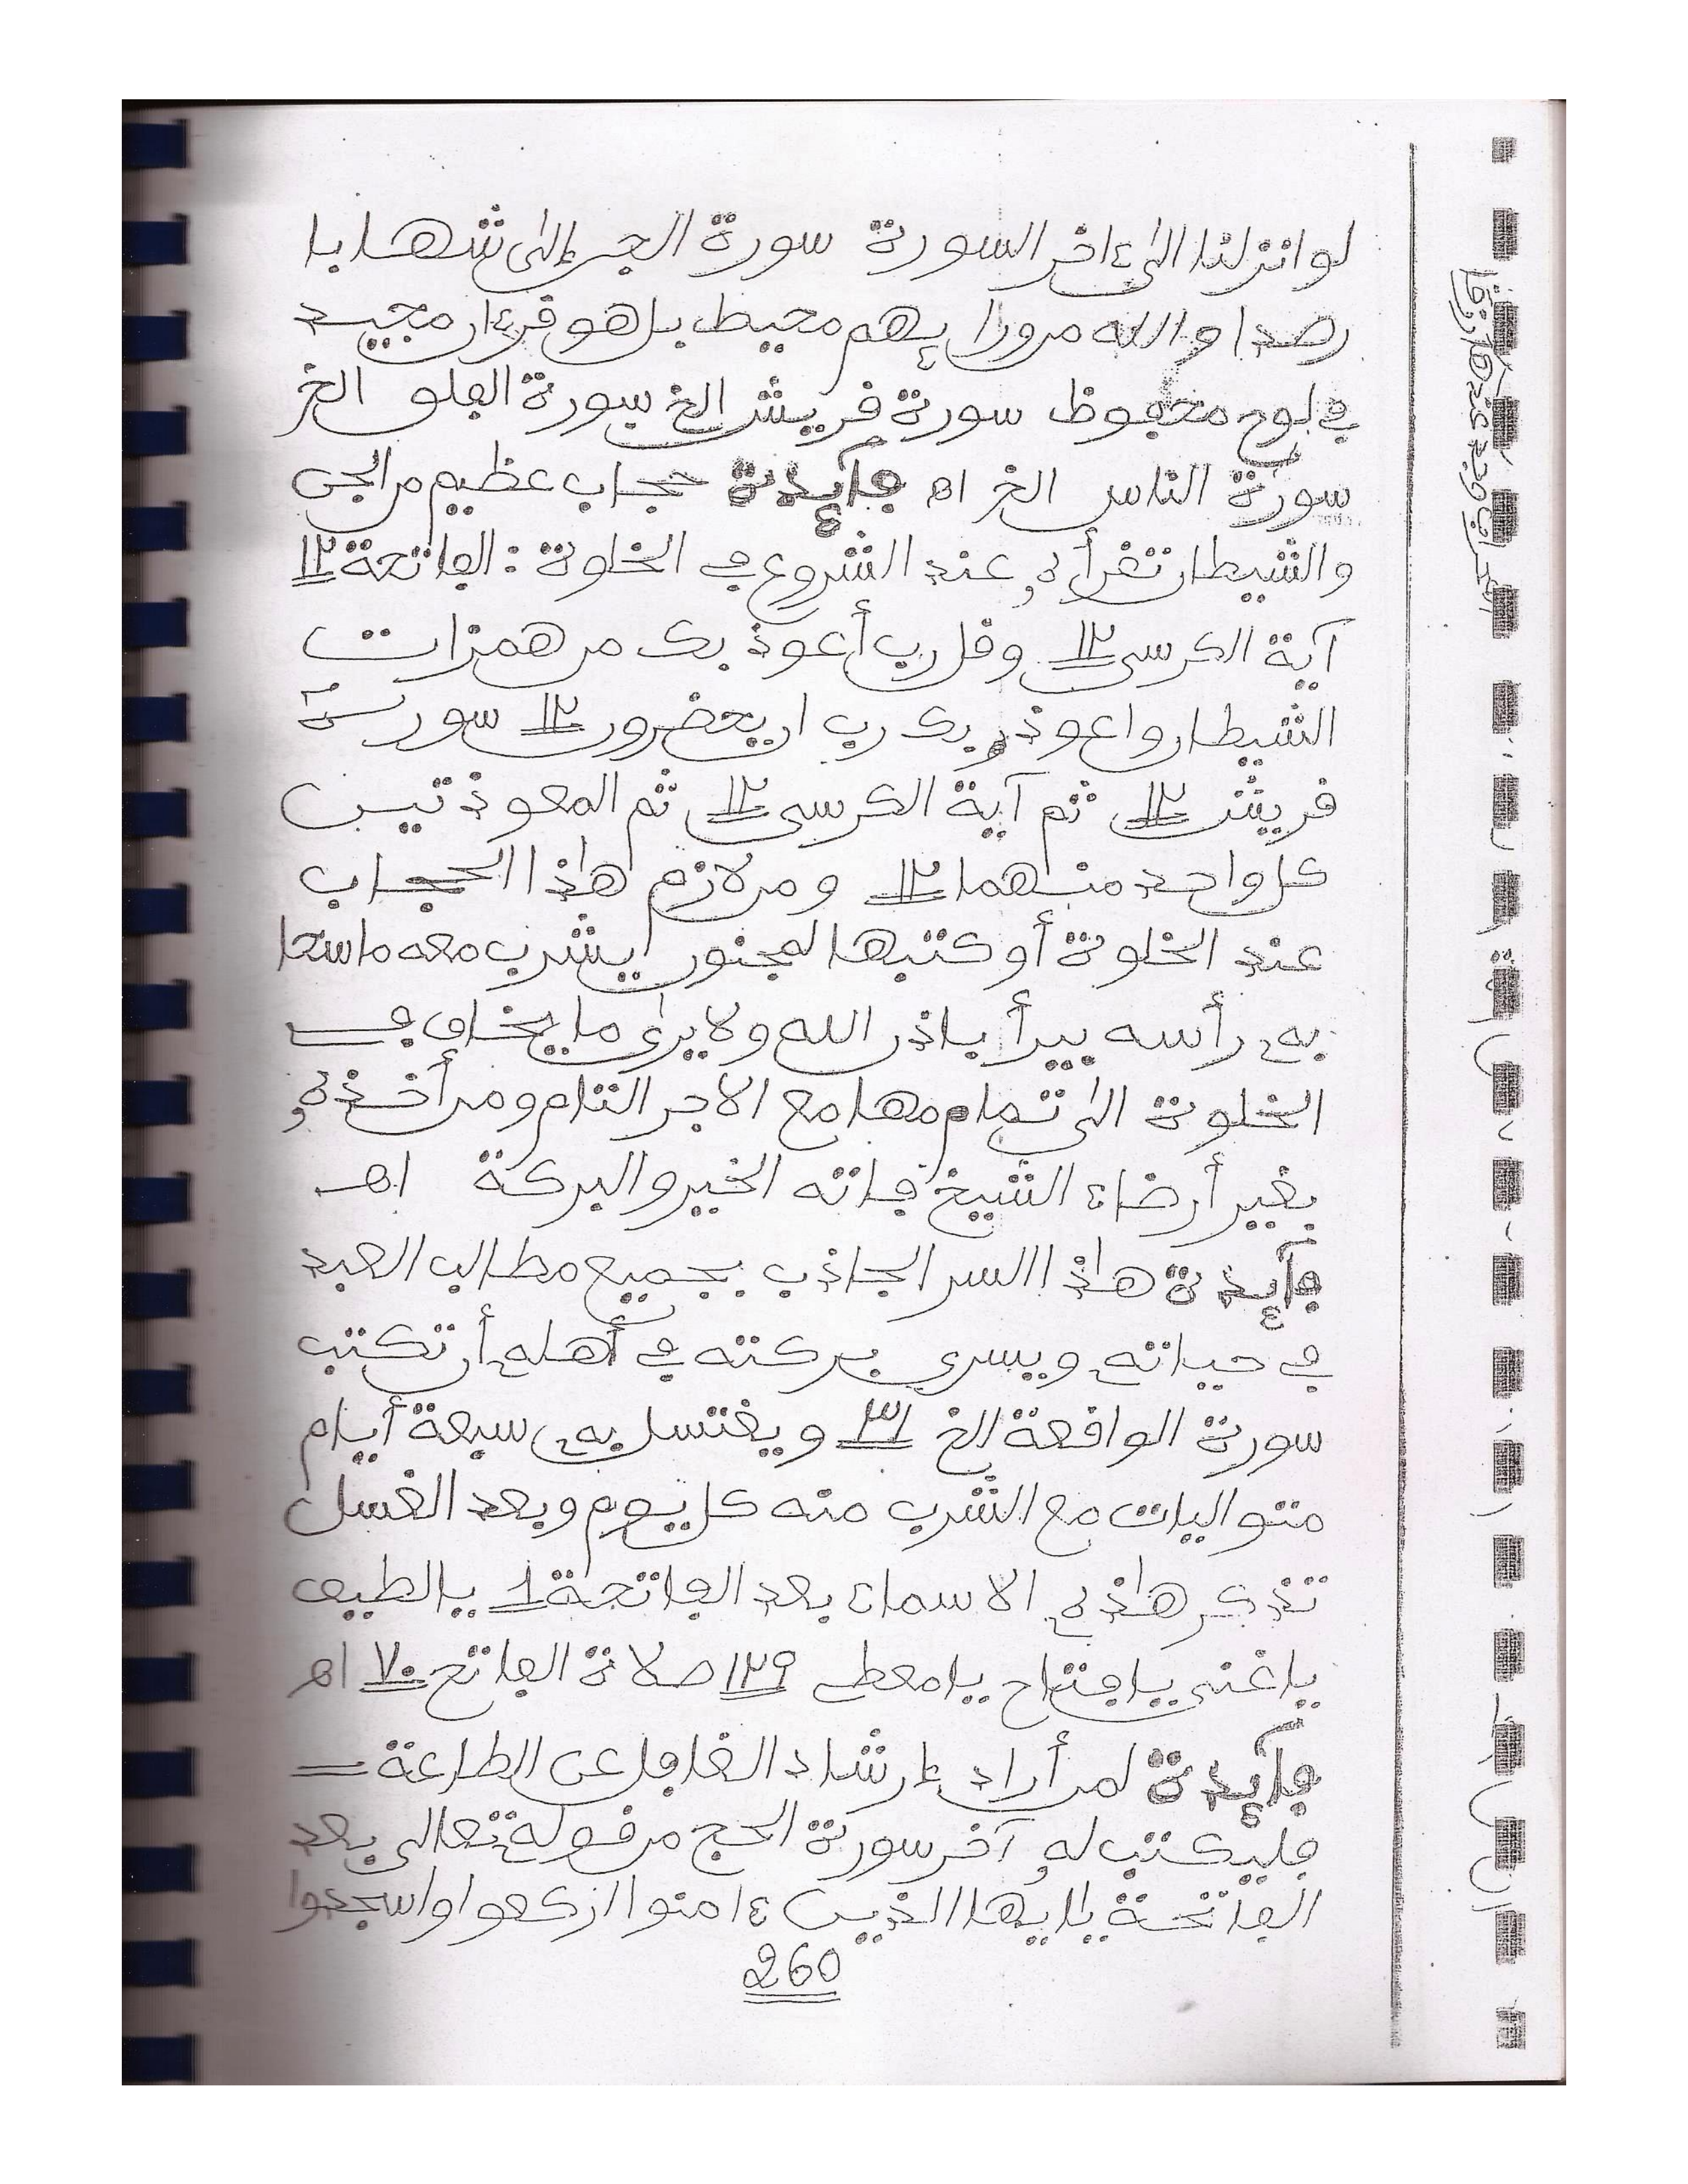 لو انزلنا الى ءاخر السورة سورة الجن إلى شهابا
رصدا والله من ورائهم محيط بل هو قرءان مجيد
في لوح محفوظ سورة قريش الخ سورة الفلق الخ
سورة الناس الخ اه فآيدة حجاب عظيم من الجن
والشيطان تقرأه عند الشروع في الخلوة : الفاتحة ١٢
آية الكرسي ١٢ وقل رب أعوذ بك من همزات
الشيطان واعوذ بك رب ان يحضرون ١٢ سورة
قريش ١٢ ثم آية الكرسي ١٢ ثم المعوذتين
كل واحد منهما ١٢ ومن لازم هذا الحجاب
عند الخلوة أو كتبها لمجنون يشرب معه ماسحا
به رأسه يبرأ باذن الله ولا يرى ما يخاف في
الخلوة الى تمامها مع الاجر التام ومن أخذه
بغير أرضاء الشيخ فاته الخير والبركة اهـ
فآيدة هذا السر الجاذب بجميع مطالب العبد
في حياته ويسرى بركته في أهله أن تكتب
سورة الواقعة الخ ٣١ ويغتسل به سبعة أيام
متواليات مع الشرب منه كل يوم وبعد الغسل
تذكر هذه الاسماء بعد الفاتحة ١ يالطيف
ياغني يافتاح يامعطي ١٢٩ صلاة الفاتح ٧٠ اه
فآيدة لمن أراد إرشاد الغافل عن الطاعة
فليكتب له آخر سورة الحج من قوله تعالى بعد
الفاتحة يا ايها الذين ءامنوا اركعوا واسجدوا
260